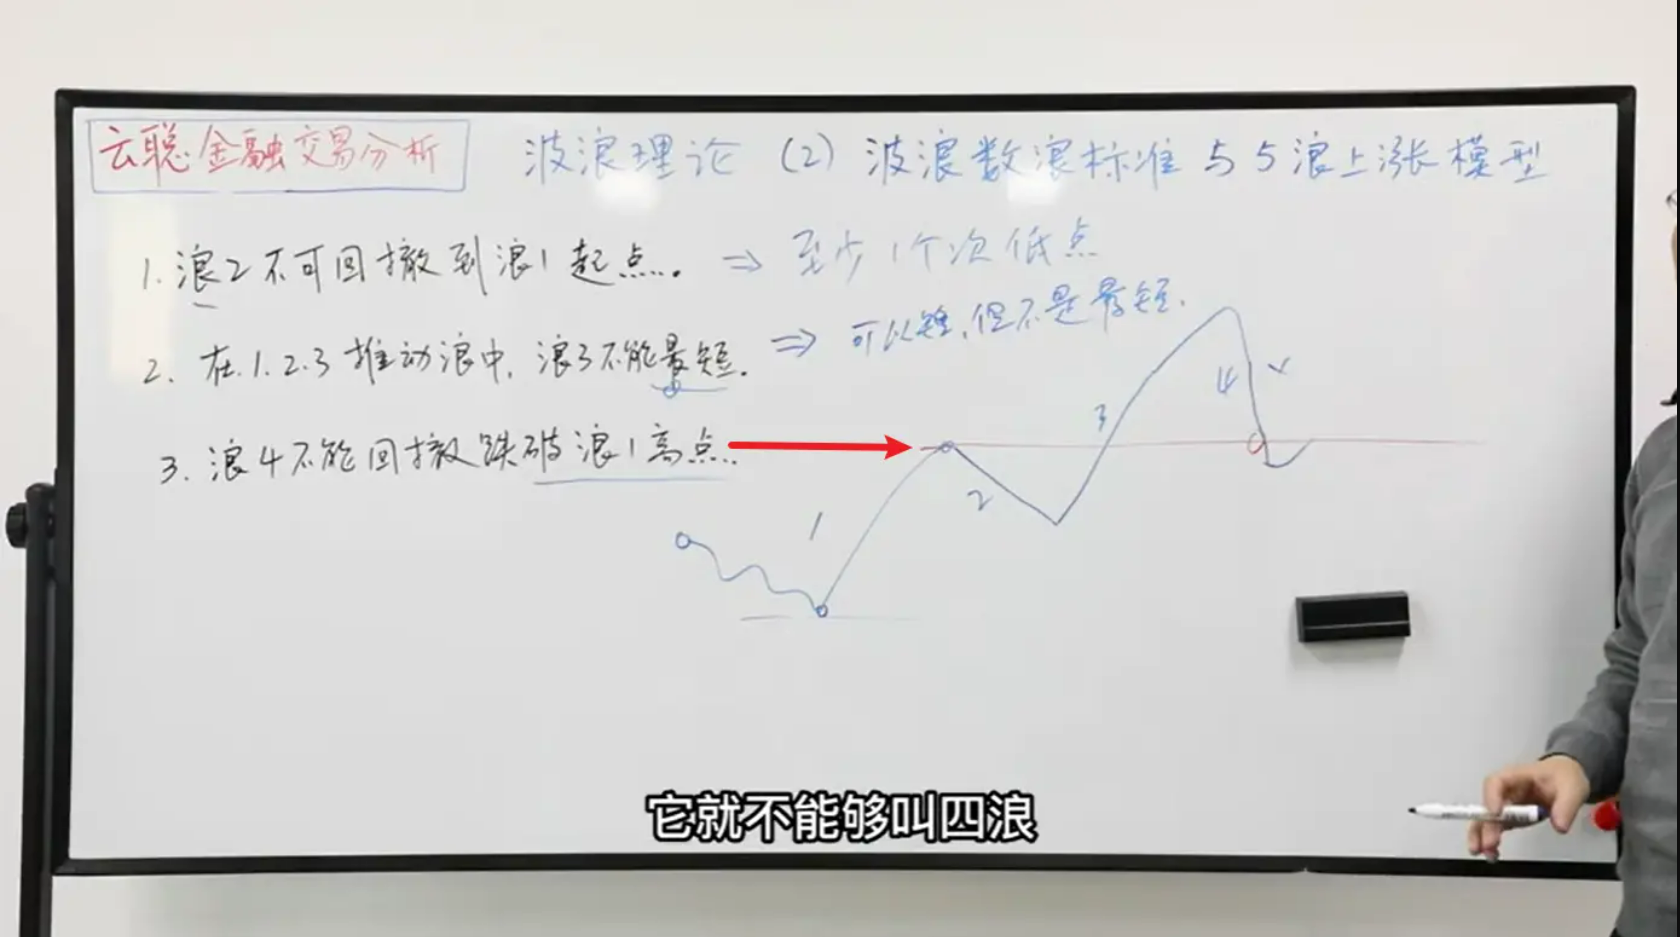 云聪金融交易分析
波浪理论 (2) 波浪数浪标准与5浪上涨模型
1. 浪2不可回撤到浪1起点. ⇒ 至少1个次低点
2. 在1.2.3推动浪中, 浪3不能最短. ⇒ 可以短,但不是最短.
3. 浪4不能回撤跌破浪1高点..
3
4 ×
2
1
它就不能够叫四浪